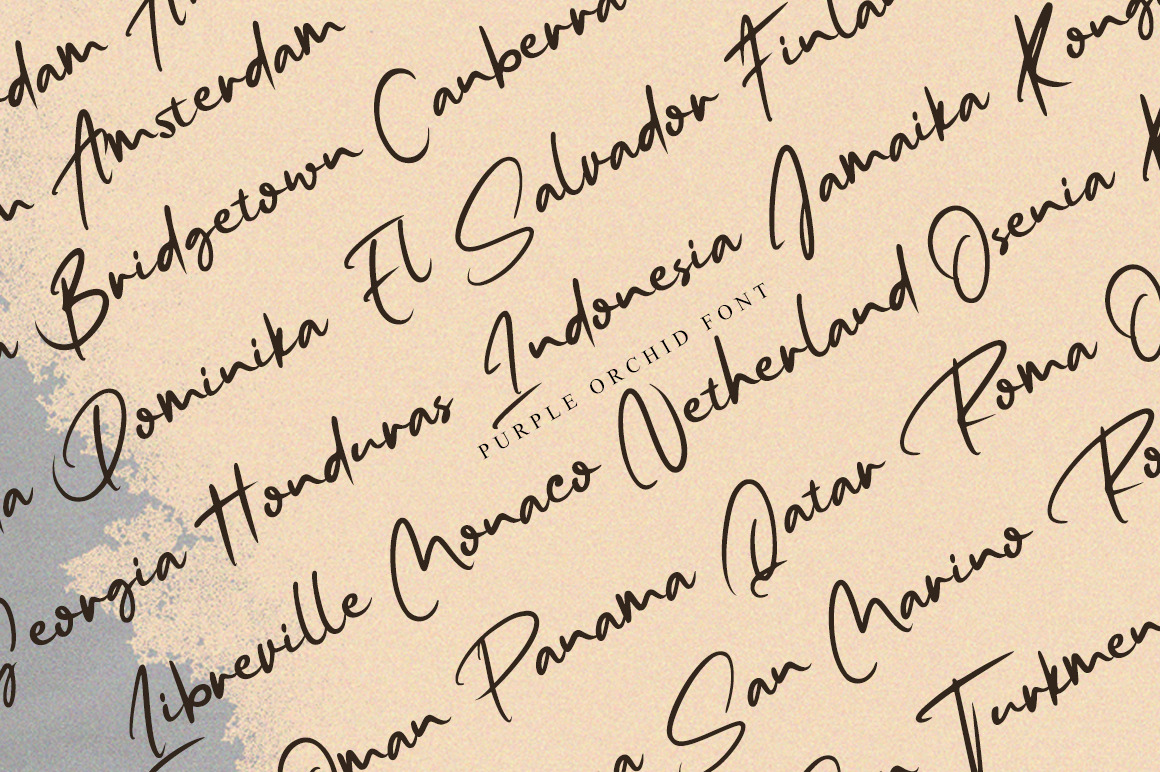 Amsterdam
Bridgetown Canberra
Dominika El Salvador
Georgia Honduras Indonesia Jamaika
PURPLE ORCHID FONT
Libreville Monaco Netherland Osenia
Oman Panama Qatar Roma
San Marino